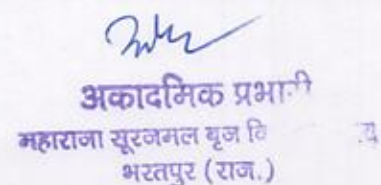 अकादमिक
महाराजा सूरजमल बृज
भरतपुर (राज.)